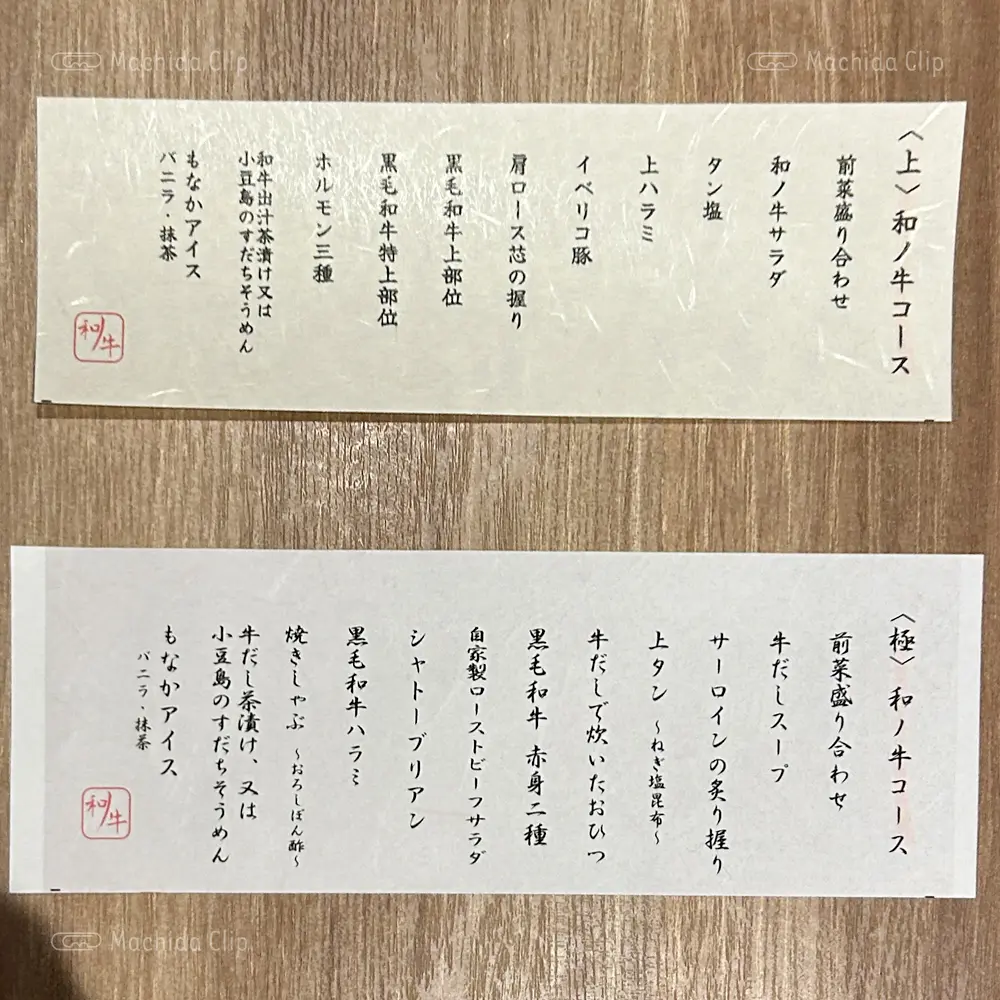 Machida Clip
Machida Clip
〈上〉和ノ牛コース
前菜盛り合わせ
和ノ牛サラダ
タン塩
上ハラミ
イベリコ豚
肩ロース芯の握り
黒毛和牛上部位
黒毛和牛特上部位
ホルモン三種
和牛出汁茶漬け又は
小豆島のすだちそうめん
もなかアイス
バニラ・抹茶
和ノ牛
〈極〉和ノ牛コース
前菜盛り合わせ
牛だしスープ
サーロインの炙り握り
上タン ~ねぎ塩昆布~
牛だしで炊いたおひつ
黒毛和牛 赤身二種
自家製ローストビーフサラダ
シャトーブリアン
黒毛和牛ハラミ
焼きしゃぶ ~おろしぽん酢~
牛だし茶漬け、又は
小豆島のすだちそうめん
もなかアイス
バニラ・抹茶
和ノ牛
Machida Clip